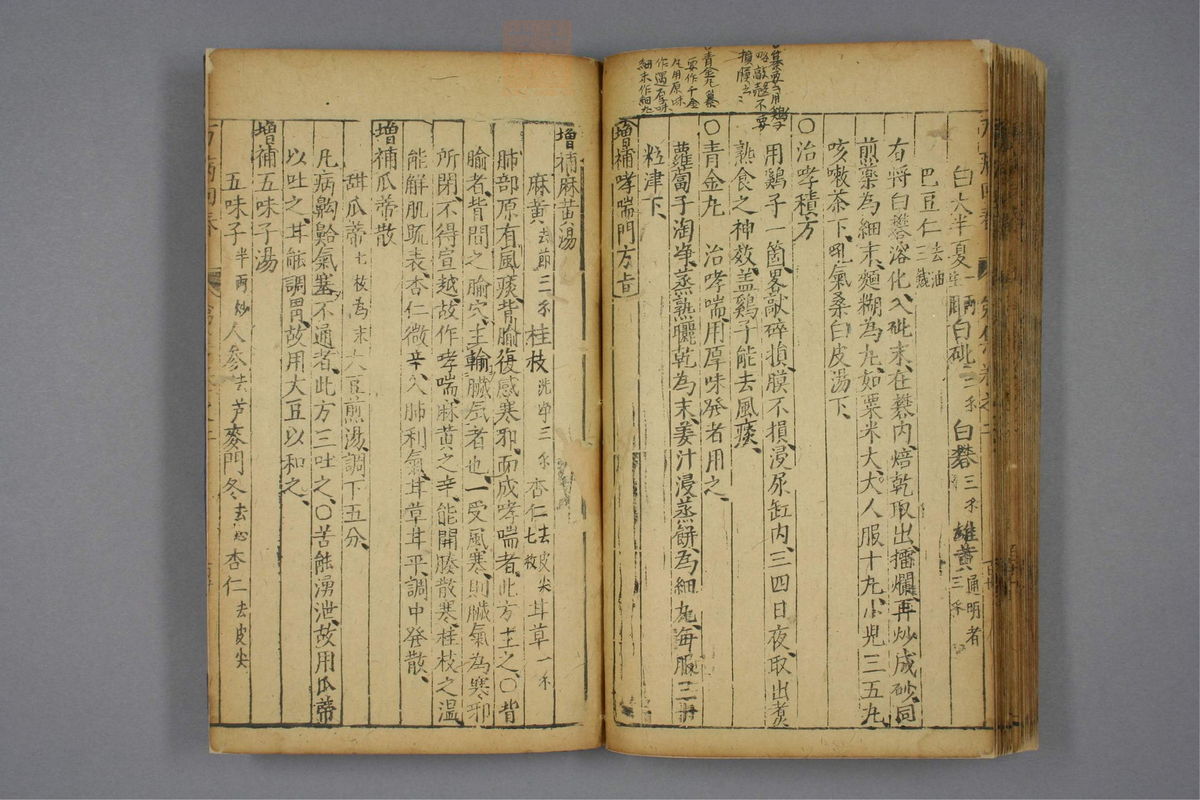 白大半夏生一兩白砒三分白礬三分雄黃通明者三分
巴豆仁去油三錢
右將白礬溶化入砒末在礬內焙乾取出擂爛再炒成砂同
煎藥為細末麵糊為丸如粟米大大人服十丸小兒三五丸
咳嗽茶下吼氣桑白皮湯下
〇治哮積方
用鷄子一箇畧敲碎損膜不損浸尿缸內三四日夜取出煮
熟食之神效盖鷄子能去風痰
〇青金丸 治哮喘用厚味發者用之
蘿蔔子淘净蒸熟曬乾為末姜汁浸蒸餅為細丸每服三十
粒津下
增補哮喘門方
青金丸纂
要作千金
丸用原味
作遇厚味
細末作細丸
增補麻黃湯
麻黃去節三分桂枝洗净三分杏仁去皮尖七枚甘草一分
肺部原有風痰背腧復感寒邪而成哮喘者此方主之〇背
腧者背間之腧穴主輸臟氣者也一受風寒則臟氣為寒邪
所閉不得宣越故作哮喘麻黃之辛能開腠散寒桂枝之溫
能解肌䟽表杏仁微辛入肺利氣甘草甘平調中發散
增補瓜蒂散
甜瓜蒂七枝為末大豆煎湯調下五分
凡病齁鮯氣塞不通者此方三吐之〇苦能湧泄故用瓜蒂
以吐之甘能調胃故用大豆以和之
增補五味子湯
五味子半兩炒人參去芦麥門冬去心杏仁去皮尖